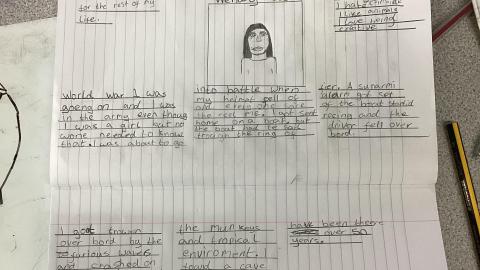 for the rest of my
life.
I like animals
I love being
creative
World War 1 was
going on and I was
in the army even thoug
I was a girl but no
wone needed to know
that. I was about to go
into battle when
my helmet fell of
and every one saw
the reel me. I got sent
home on a boat, but
the boat had to sail
trough the ring of
fier. A sunarmi
alarm got set
of the boat started
rocing and the
driver fell over
bord.
I got trown
over bord by the
furious waves
and crashed on
the munkeys
and tropical
enviroment. I
found a cave
have been there
over 50
years.